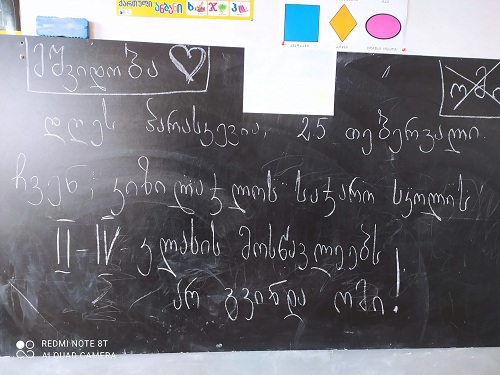 ქართული ანბანი
მშვიდობა
ომი
დღეს პარასკევია, 25 თებერვალი.
ჩვენ, კიზილაჯლოს საჯარო სკოლის
II-IV კლასის მოსწავლეებს
არ გვინდა ომი!
REDMI NOTE 8T
AI QUAD CAMERA